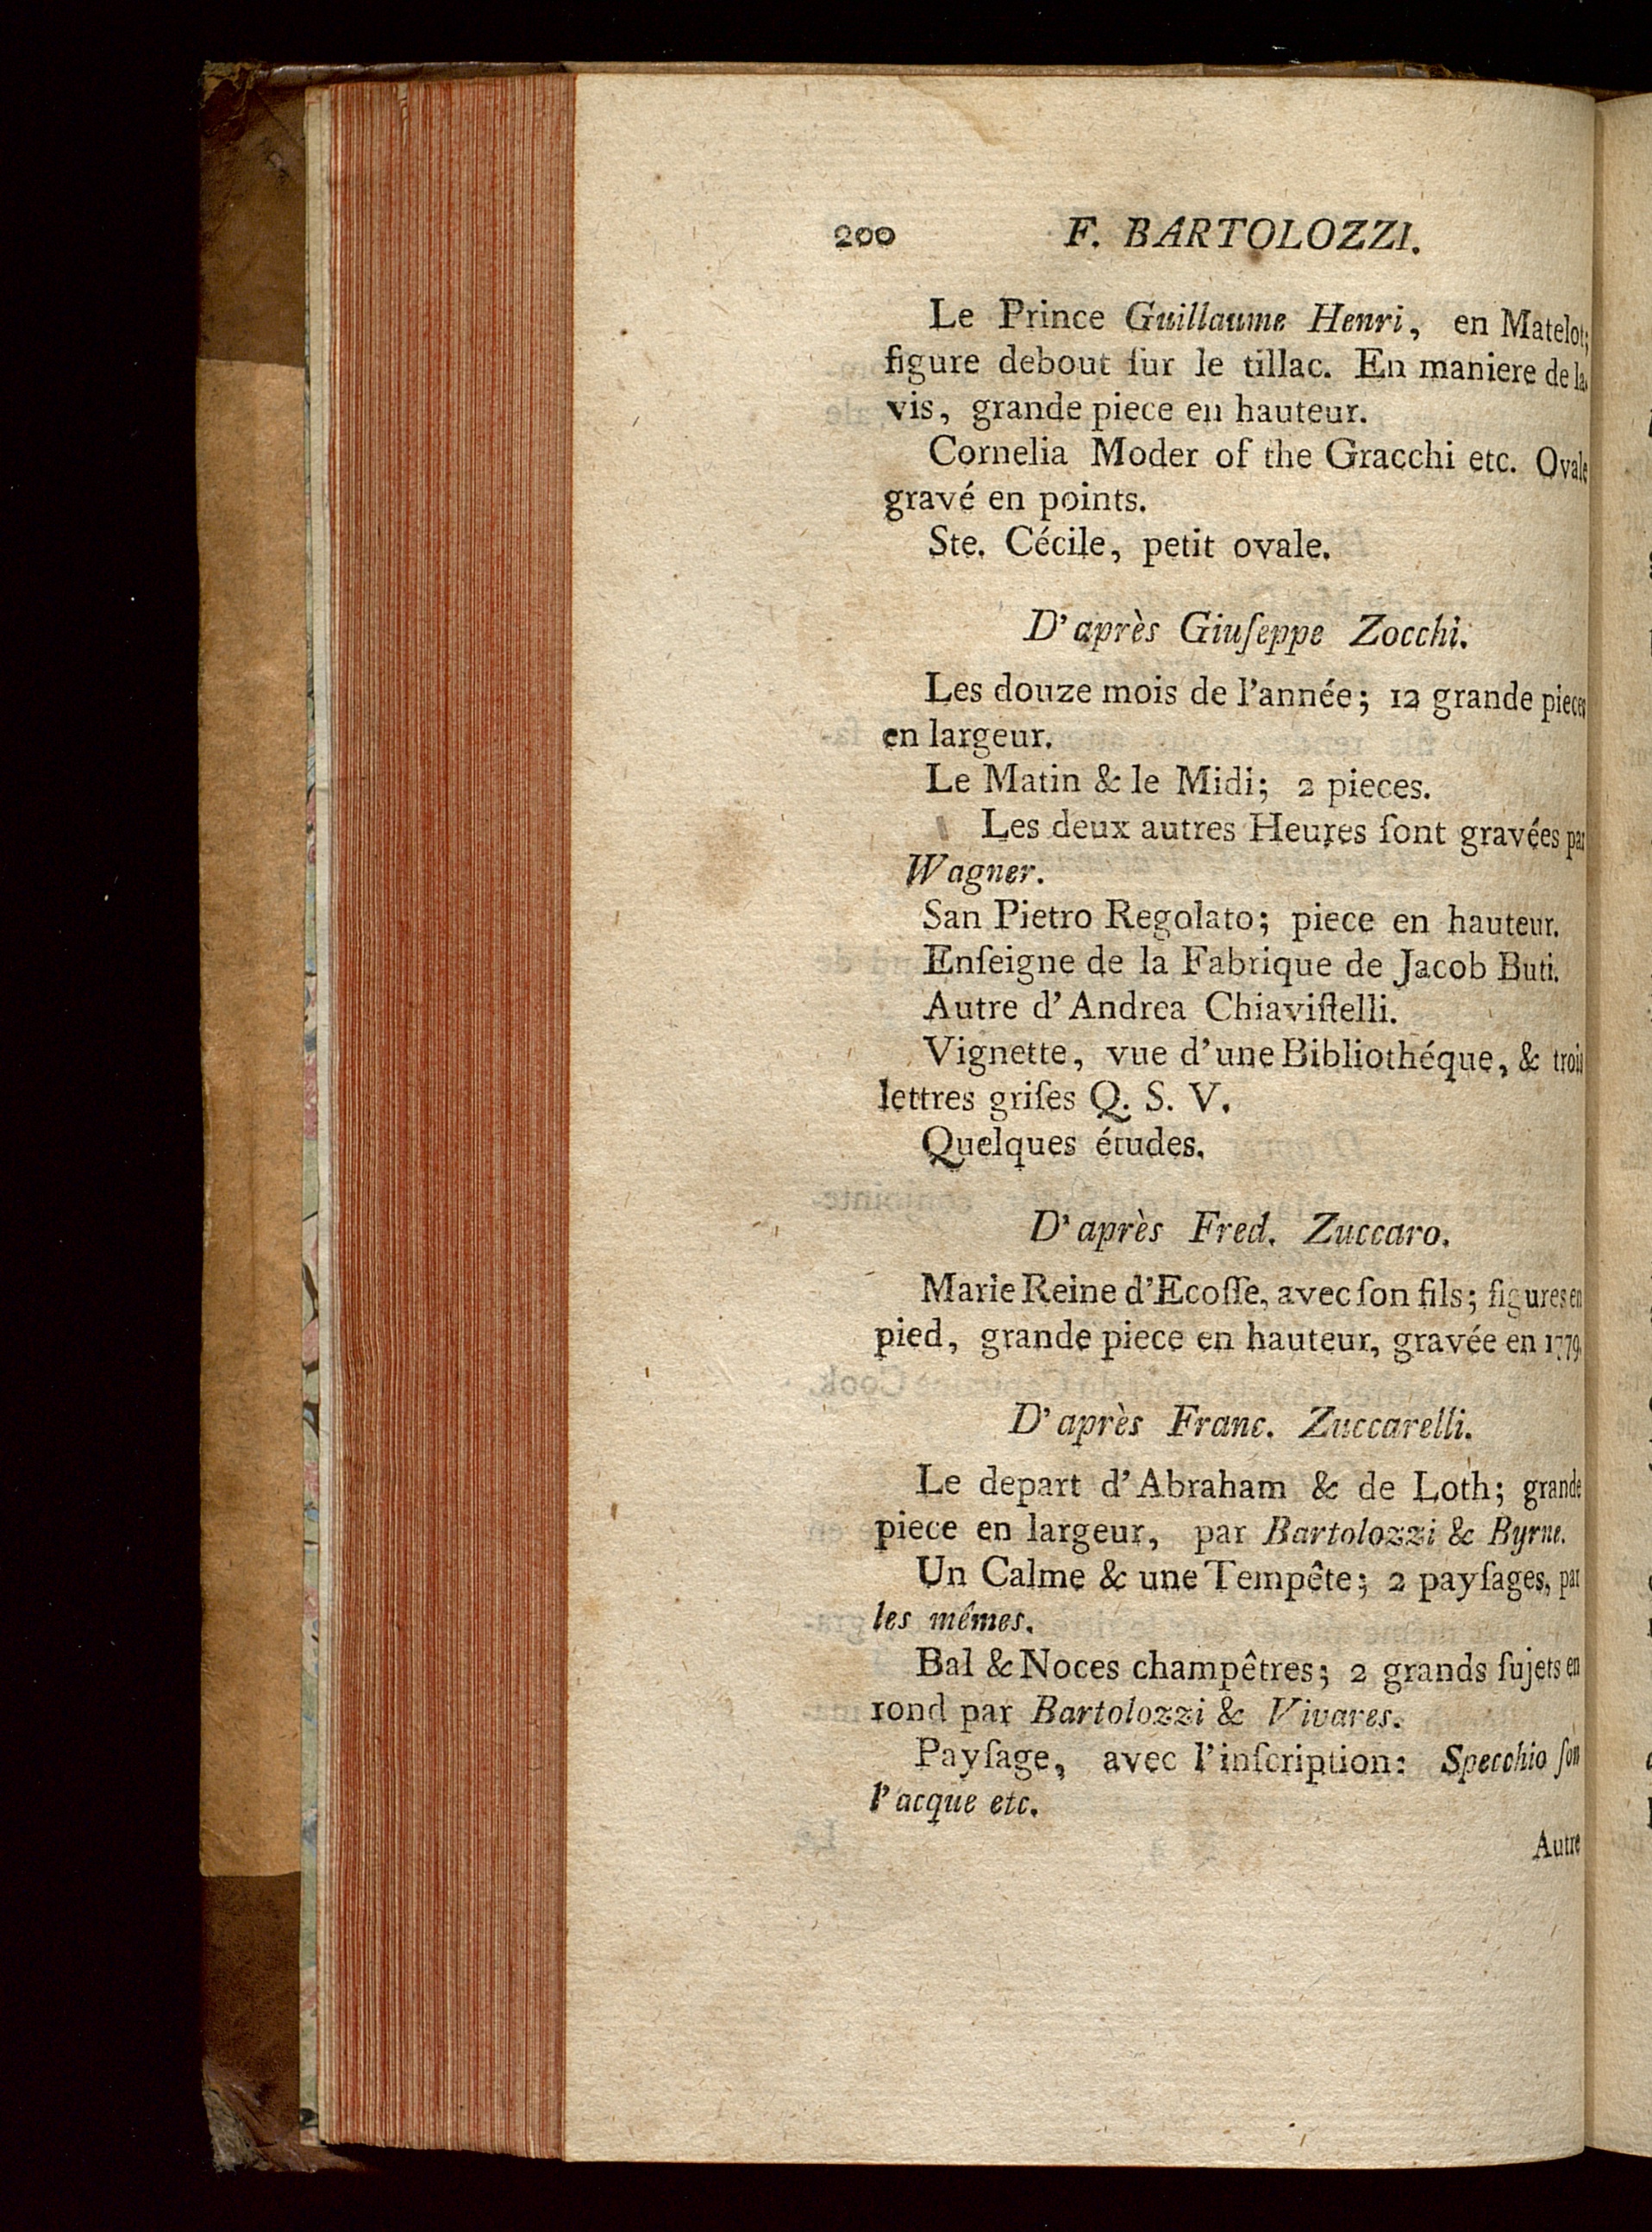 200 F. BARTOLOZZI.
Le Prince Guillaume Henri, en Matelot;
figure debout ſur le tillac. En maniere de la-
vis, grande piece en hauteur.
Cornelia Moder of the Gracchi etc. Ovale
gravé en points.
Ste. Cécile, petit ovale.
D'après Giuſeppe Zocchi.
Les douze mois de l'année; 12 grande pieces
en largeur.
Le Matin & le Midi; 2 pieces.
Les deux autres Heures ſont gravées par
Wagner.
San Pietro Regolato; piece en hauteur.
Enſeigne de la Fabrique de Jacob Buti.
Autre d'Andrea Chiaviſtelli.
Vignette, vue d'une Bibliothéque, & trois
lettres griſes Q. S. V.
Quelques études.
D'après Fred. Zuccaro.
Marie Reine d'Ecoſſe, avec ſon fils; figures en
pied, grande piece en hauteur, gravée en 1779.
D'après Franc. Zuccarelli.
Le depart d'Abraham & de Loth; grande
piece en largeur, par Bartolozzi & Byrne.
Un Calme & une Tempête; 2 payſages, par
les mêmes.
Bal & Noces champêtres; 2 grands ſujets en
rond par Bartolozzi & Vivares.
Payſage, avec l'inſcription: Specchio ſon
l'acque etc.
Autre